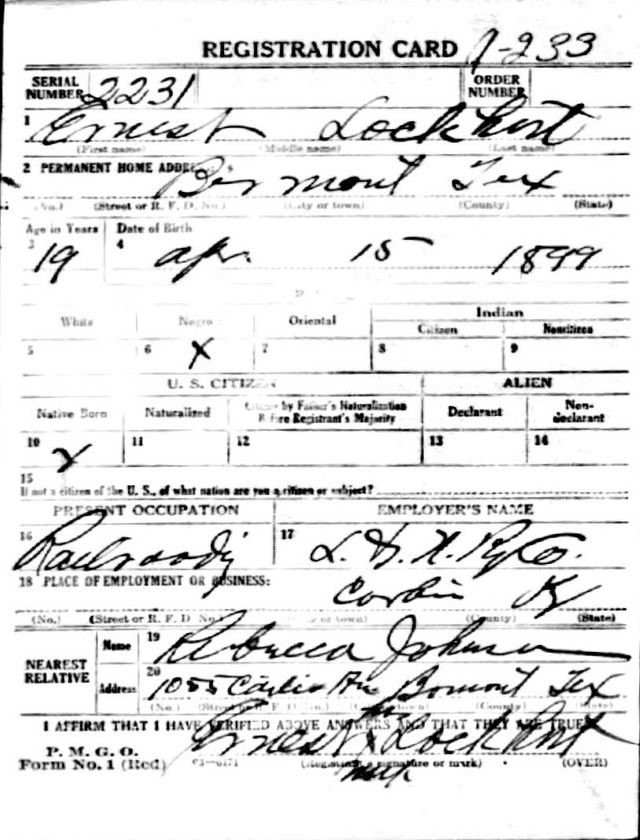 REGISTRATION CARD 1-233
SERIAL NUMBER 2231 ORDER NUMBER
1 Ernest Lockhart
(First name) (Middle name) (Last name)
2 PERMANENT HOME ADDRESS
Bermont Tex
(No.) (Street or R. F. D. No.) (City or town) (County) (State)
Age in Years Date of Birth
3 19 4 Apr. 15 1899
White Negro Oriental Indian
Citizen Noncitizen
5 6 X 7 8 9
U. S. CITIZEN ALIEN
Native Born Naturalized Citizen by Father's Naturalization Before Registrant's Majority Declarant Non-declarant
10 X 11 12 13 14
15
If not a citizen of the U. S., of what nation are you a citizen or subject?
PRESENT OCCUPATION EMPLOYER'S NAME
16 Railroading 17 L. & N. Ry Co.
18 PLACE OF EMPLOYMENT OR BUSINESS:
Corbin Ky
(No.) (Street or R. F. D. No.) (City or town) (County) (State)
NEAREST RELATIVE
Name 19 Rebecca Johnson
Address 20 1055 Bomont Tex
(No.) (Street or R. F. D. No.) (City or town) (County) (State)
I AFFIRM THAT I HAVE VERIFIED ABOVE ANSWERS AND THAT THEY ARE TRUE
P. M. G. O.
Form No. 1 (Red) Ernest X Lockhart
(Registrant's signature or mark) (OVER)